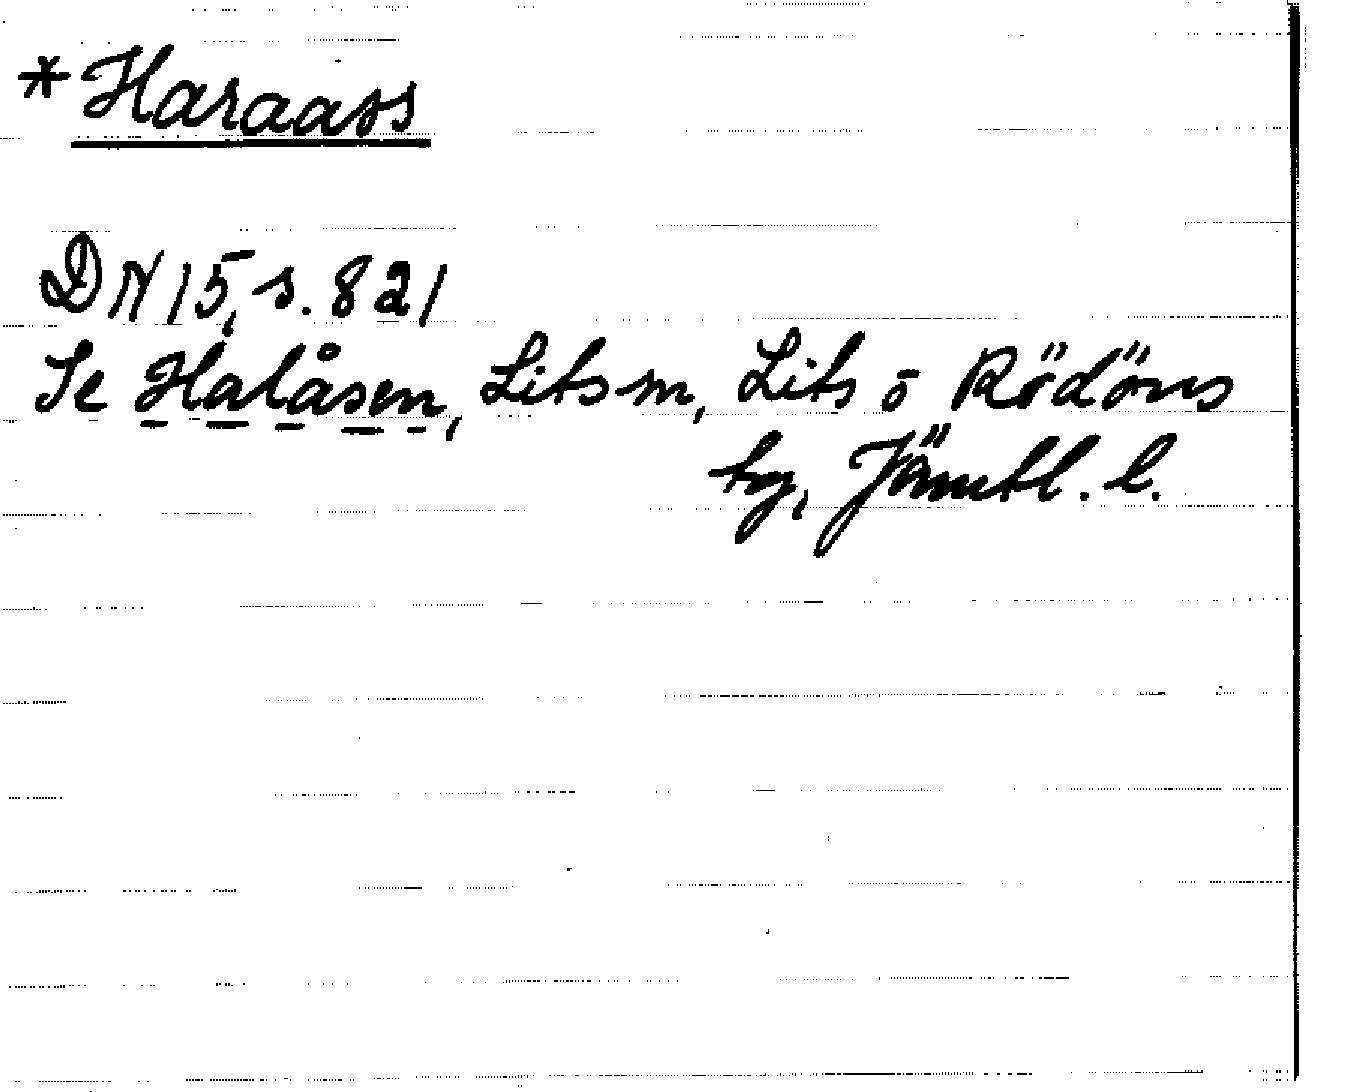 *Haraass
DN 15, s. 821
Se Halåsen, Lits sn, Lits o Rödöns
tg, Jämtl. l.